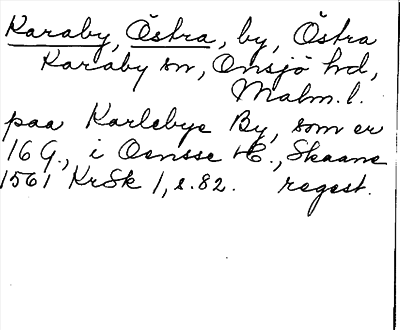 Karaby, Östra, by, Östra
Karaby sn, Onsjö hd,
Malm. l.
paa Karlebye By, som er
16 G., i Oensse H., Skaane
1561 KrSk 1, s. 82. regest.